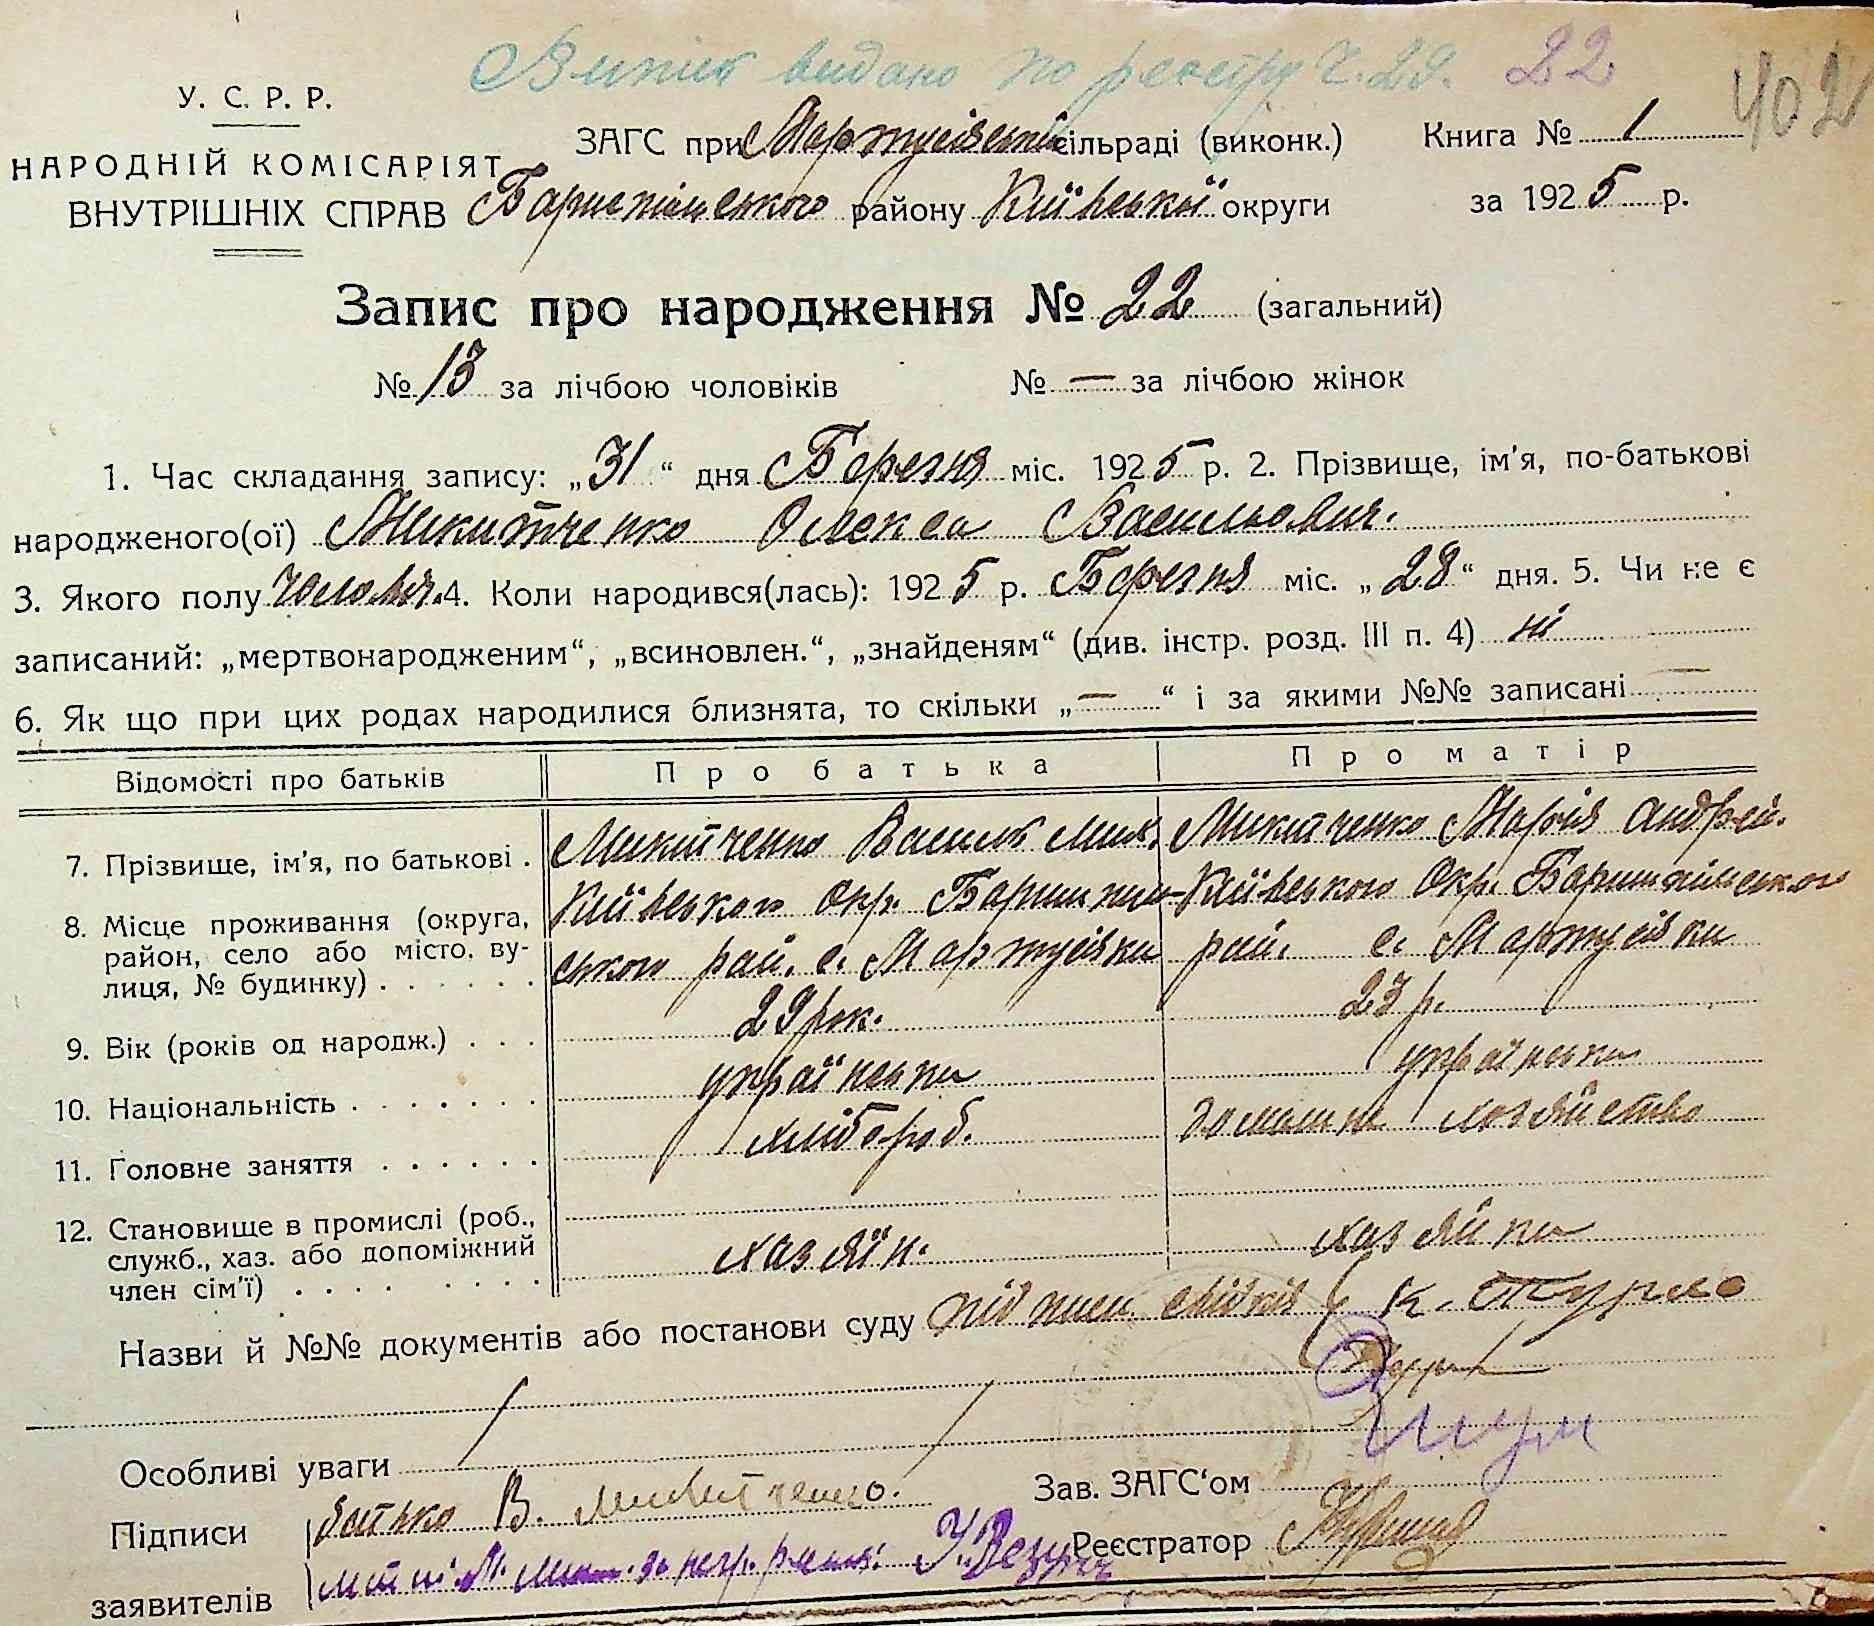 Витяг видано по реєстру Ч. 29. 22
402
У. С. Р. Р.
НАРОДНІЙ КОМІСАРІЯТ
ВНУТРІШНІХ СПРАВ
ЗАГС при Мартусівській сільраді (виконк.) Книга № 1
Бариспільського району Київської округи за 1925 р.
Запис про народження № 22 (загальний)
№ 13 за лічбою чоловіків № — за лічбою жінок
1. Час складання запису: „31“ дня Березня міс. 1925 р. 2. Прізвище, ім'я, по-батькові
народженого(ої) Микитченко Олекса Васильович.
3. Якого полу чолович. 4. Коли народився(лась): 1925 р. Березня міс. „28“ дня. 5. Чи не є
записаний: „мертвонародженим“, „всиновлен.“, „знайденям“ (див. інстр. розд. III п. 4) ні
6. Як що при цих родах народилися близнята, то скільки „—“ і за якими №№ записані —
Відомості про батьків Про батька Про матір
7. Прізвище, ім'я, по батькові . Микитченко Василь Мих. Микитченко Марія Андрей.
8. Місце проживання (округа, район, село або місто, вулиця, № будинку) . . . . . .
Київського Окр. Баришпільського рай. с. Мартусівки
Київського Окр. Баришпільського
рай. с. Мартусівки
9. Вік (років од народж.) . . . 29 рок. 23 р.
10. Національність . . . . . . . українка українка
11. Головне заняття . . . . . . хлібороб. домашнє хозяйство
12. Становище в промислі (роб.,
служб., хаз. або допоміжний
член сім'ї) . . . . . . . . хазяїн. хазяйка
Назви й №№ документів або постанови суду підпис свідків К. Турло
Особливі уваги
Підписи батько В. Микитченко. Зав. ЗАГС'ом
заявителів Реєстратор